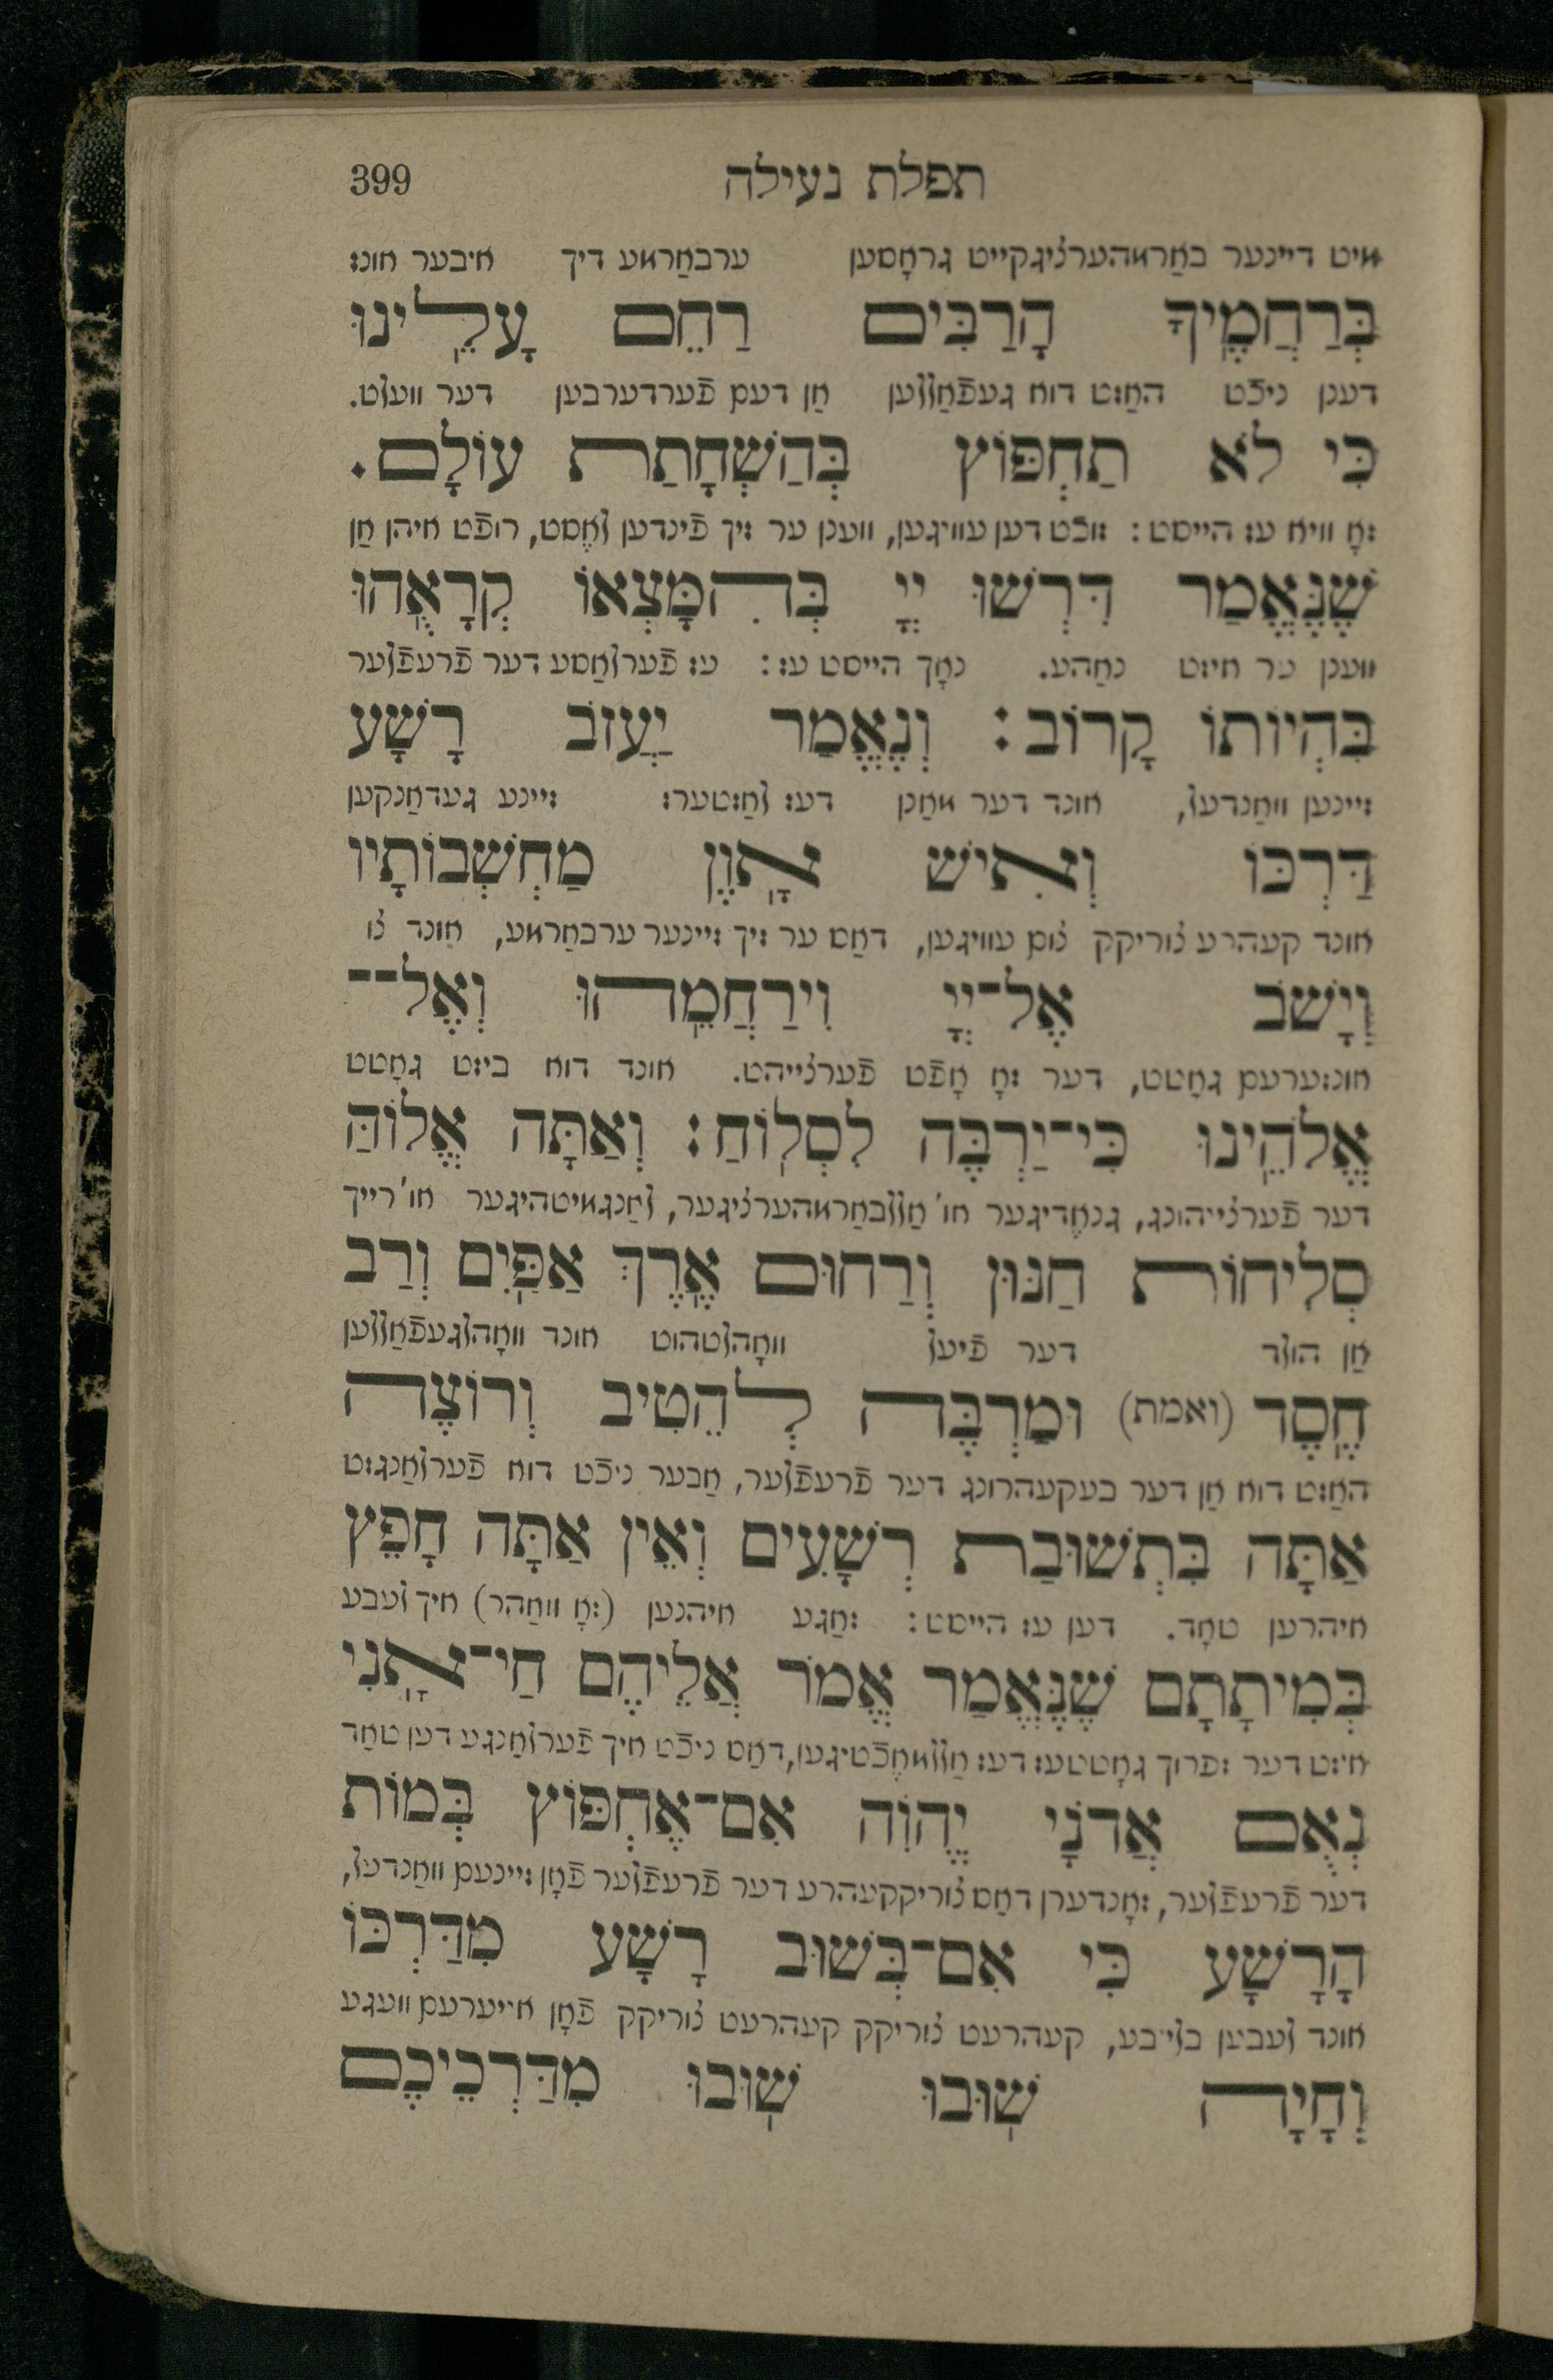 תפלת נעילה 399
מיט דיינער באַרמהערציגקייט גראָסען ערבאַרמע דיך איבער אונז
בְּרַחֲמֶיךָ הָרַבִּים רַחֵם עָלֵינוּ
דענן ניכֿט האַזט דוא געפֿאַללען אַן דעם פֿערדערבען דער וועלט.
כִּי לֹא תַחְפּוֹץ בְּהַשְׁחָתַת עוֹלָם.
זאָ וויא עז הייסט: זוכֿט דען עוויגען, ווענן ער זיך פֿינדען לאֶסט, רופֿט איהן אַן
שֶׁנֶּאֱמַר דִּרְשׁוּ יְיָ בְּהִמָּצְאוֹ קְרָאֻהוּ
ווענן ער איזט נאַהע. נאָך הייסט עז: עז פֿערלאַסע דער פֿרעפֿלער
בִּהְיוֹתוֹ קָרוֹב: וְנֶאֱמַר יַעֲזֹב רָשָׁע
זיינען וואַנדעל, אונד דער מאַנן דעז לאַזטערז זיינע געדאַנקען
דַּרְכּוֹ וְאִישׁ אָוֶן מַחְשְׁבוֹתָיו
אונד קעהרע צוריקק צום עוויגען, דאַס ער זיך זיינער ערבאַרמע, אונד צו
וְיָשֹׁב אֶל־יְיָ וִירַחֲמֵהוּ וְאֶל־־
אונזערעם גאָטט, דער זאָ אָפֿט פֿערצייהט. אונד דוא ביזט גאָטט
אֱלֹהֵינוּ כִּי־יַרְבֶּה לִסְלוֹחַ: וְאַתָּה אֱלוֹהַּ
דער פֿערצייהונג, גנאֶדיגער או' אַללבאַרמהערציגער, לאַנגמיטהיגער או' רייך
סְלִיחוֹת חַנּוּן וְרַחוּם אֶרֶךְ אַפַּיִם וְרַב
אַן הולד דער פֿיעל וואָהלטהוט אונד וואָהלגעפֿאַללען
חֶסֶד (ואמת) וּמַרְבֶּה לְהֵטִיב וְרוֹצֶה
האַזט דוא אַן דער בעקעהרונג דער פֿרעפֿלער, אַבער ניכֿט דוא פֿערלאַנגזט
אַתָּה בִּתְשׁוּבַת רְשָׁעִים וְאֵין אַתָּה חָפֵץ
איהרען טאָד. דען עז הייסט: זאַגע איהנען (זאָ וואַהר) איך לעבע
בְּמִיתָתָם שֶׁנֶּאֱמַר אֱמֹר אֲלֵיהֶם חַי־אָנִי
איזט דער זפרוך גאָטטעז דעז אַללמאֶכֿטיגען, דאַס ניכֿט איך פֿערלאַנגע דען טאָד
נְאֻם אֲדֹנָי יֱהֹוִה אִם־אֶחְפּוֹץ בְּמוֹת
דער פֿרעפֿלער, זאָנדערן דאַס צוריקקעהרע דער פֿרעפֿלער פֿאָן זיינעם וואַנדעל,
הָרָשָׁע כִּי אִם־בְּשׁוּב רָשָׁע מִדַּרְכּוֹ
אונד לעבען בלייבע, קעהרעט צוריקק קעהרעט צוריקק פֿאָן אייערעם וועגע
וְחָיָה שׁוּבוּ שׁוּבוּ מִדַּרְכֵיכֶם